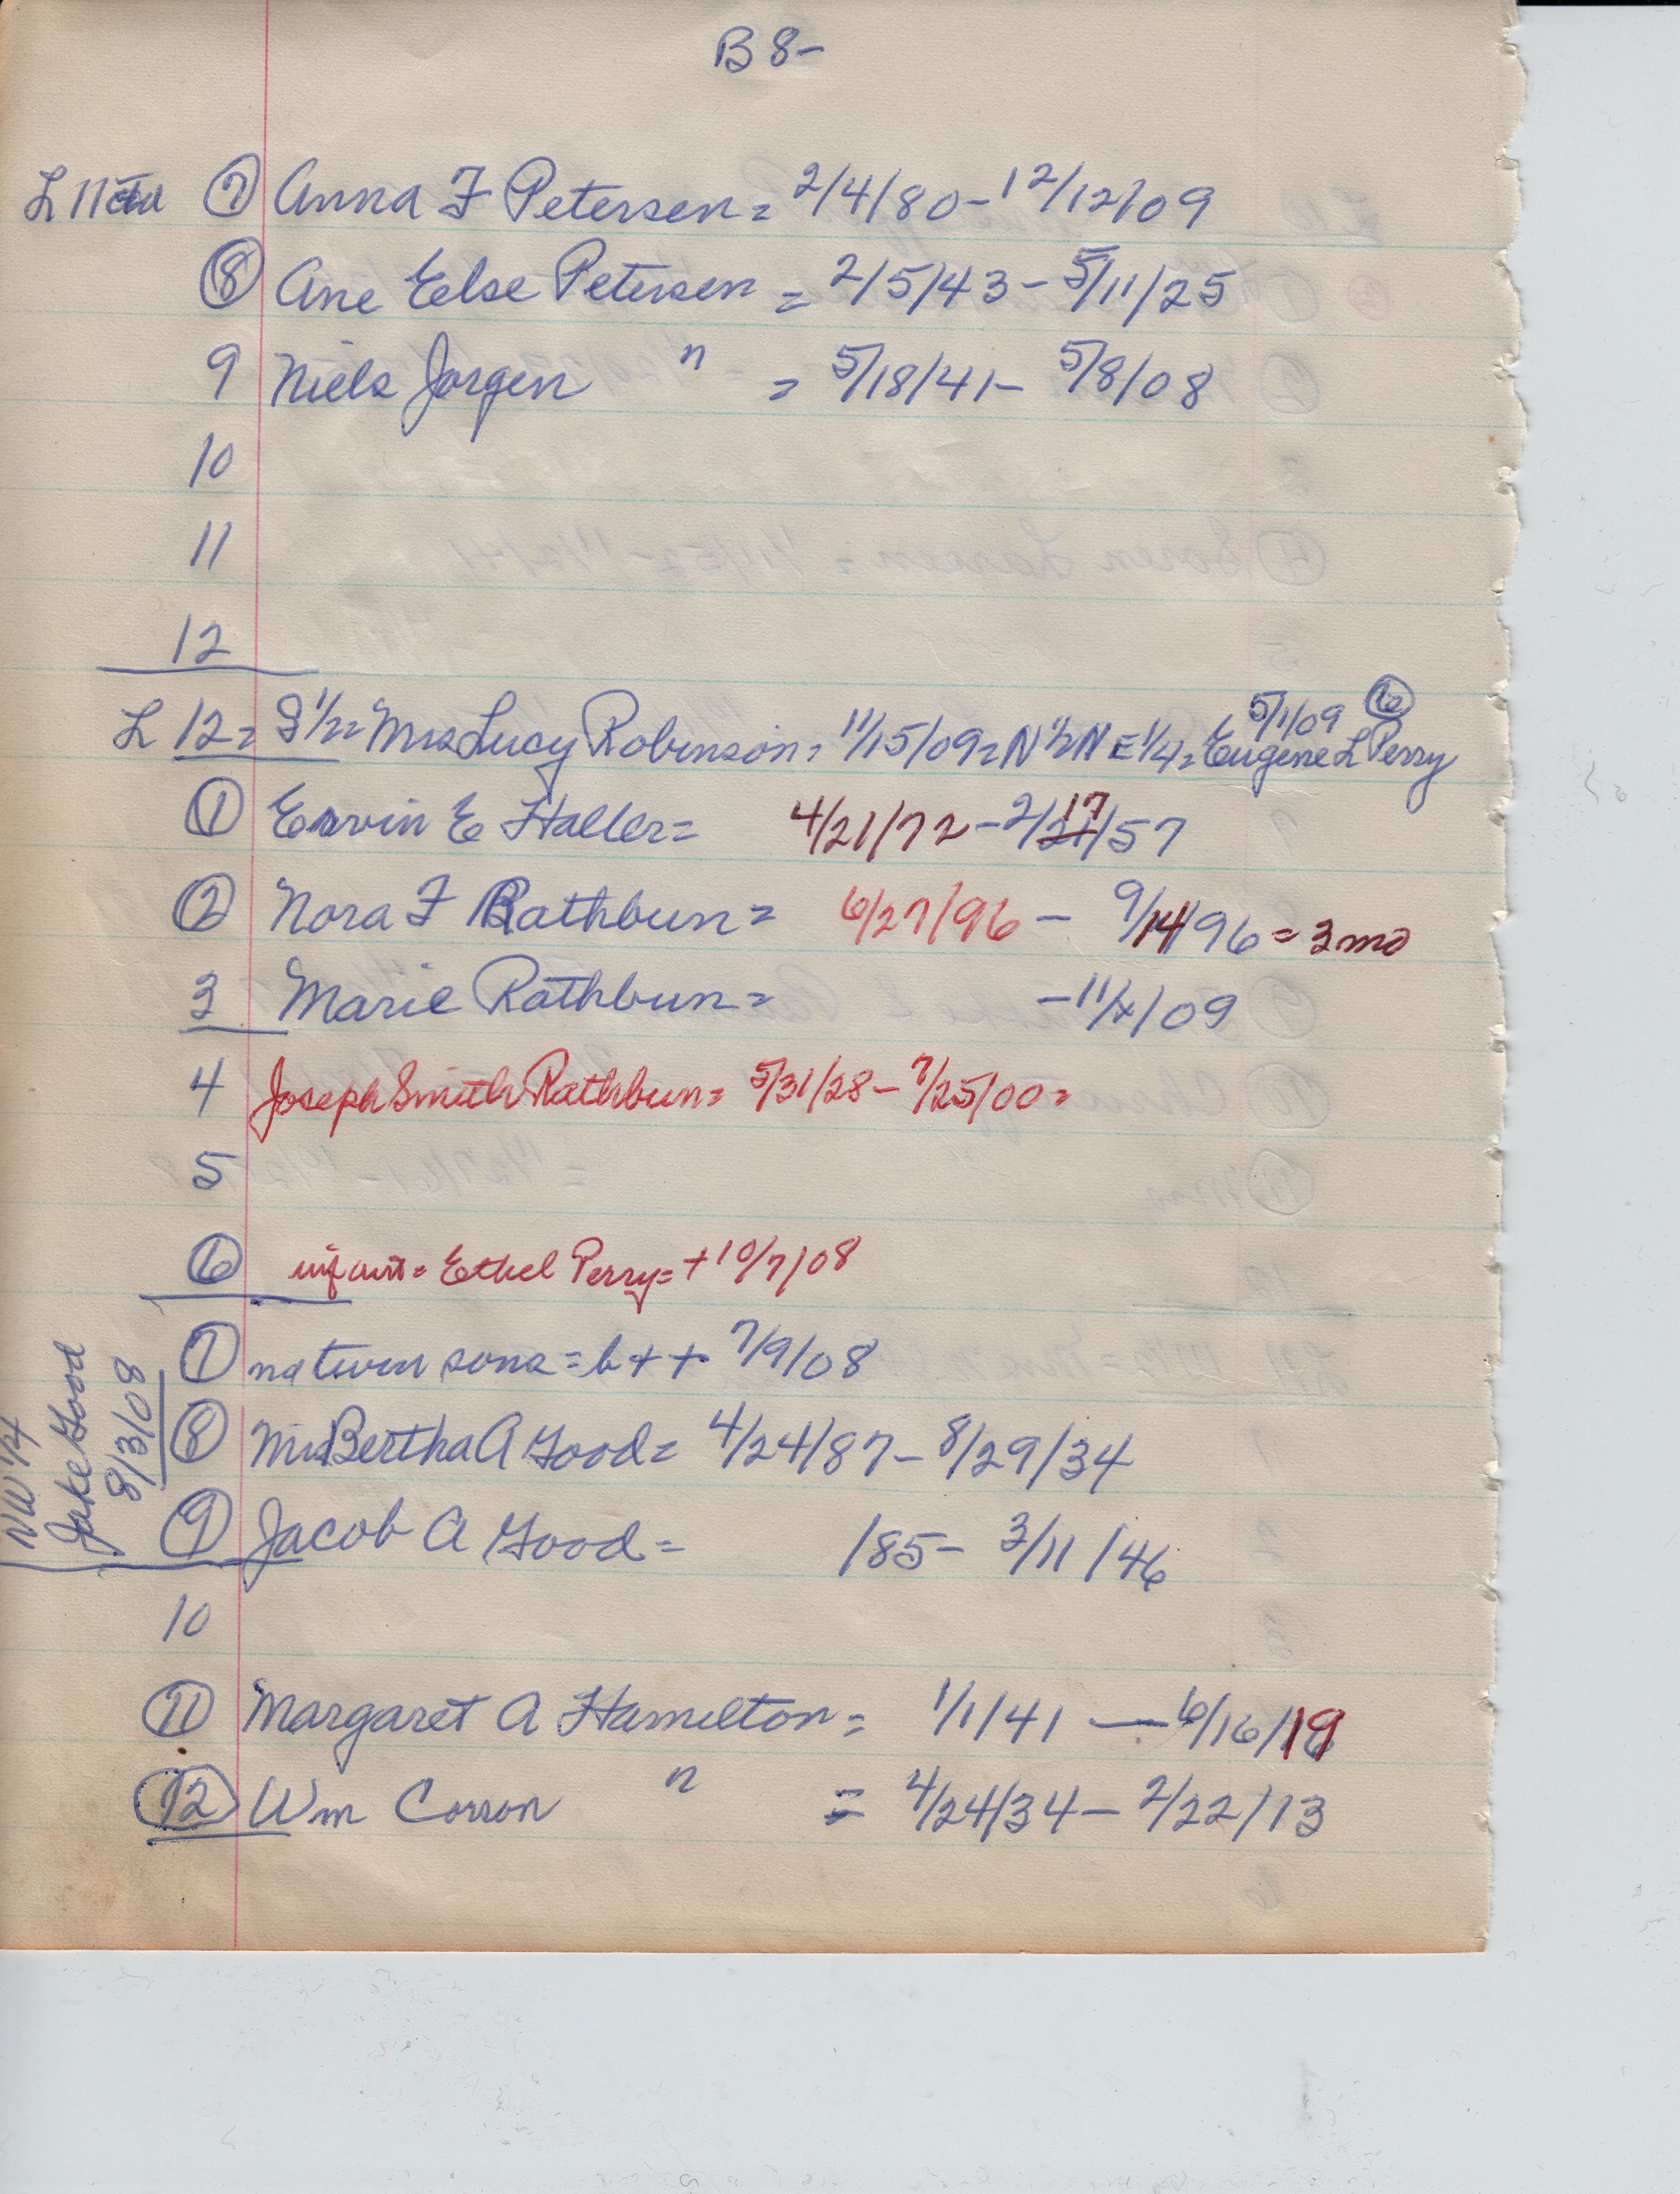 B 8-
L 11 ⑦ Anna F Petersen = 2/4/80 - 12/12/09
⑧ Ane Eelse Petersen = 2/5/43 - 5/11/25
9 Niels Jorgen " = 5/18/41 - 5/8/08
10
11
12
5/1/09 ⑥
L 12 = S 1/2 = Mrs Lucy Robinson = 11/15/09 = N 1/2 N E 1/4 = Eugene L Perry
① Ervin E Haller = 4/21/72 - 2/17/57
② Nora F Rathbun = 6/27/96 - 9/14/96 = 3 mo
3 Marie Rathbun = - 11/x/09
4 Joseph Smith Rathbun = 5/31/28 - 7/25/00 =
5
⑥ infant = Ethel Perry = + 10/7/08
⑦ na twin sons = b + + 7/9/08
⑧ Mrs Bertha A Good = 4/24/87 - 8/29/34
⑨ Jacob A Good = /85 - 3/11/46
NW 1/4
Jake Good
8/3/08
10
⑪ Margaret A Hamilton = 1/1/41 — 6/16/19
⑫ Wm Corson " = 4/24/34 - 2/22/13